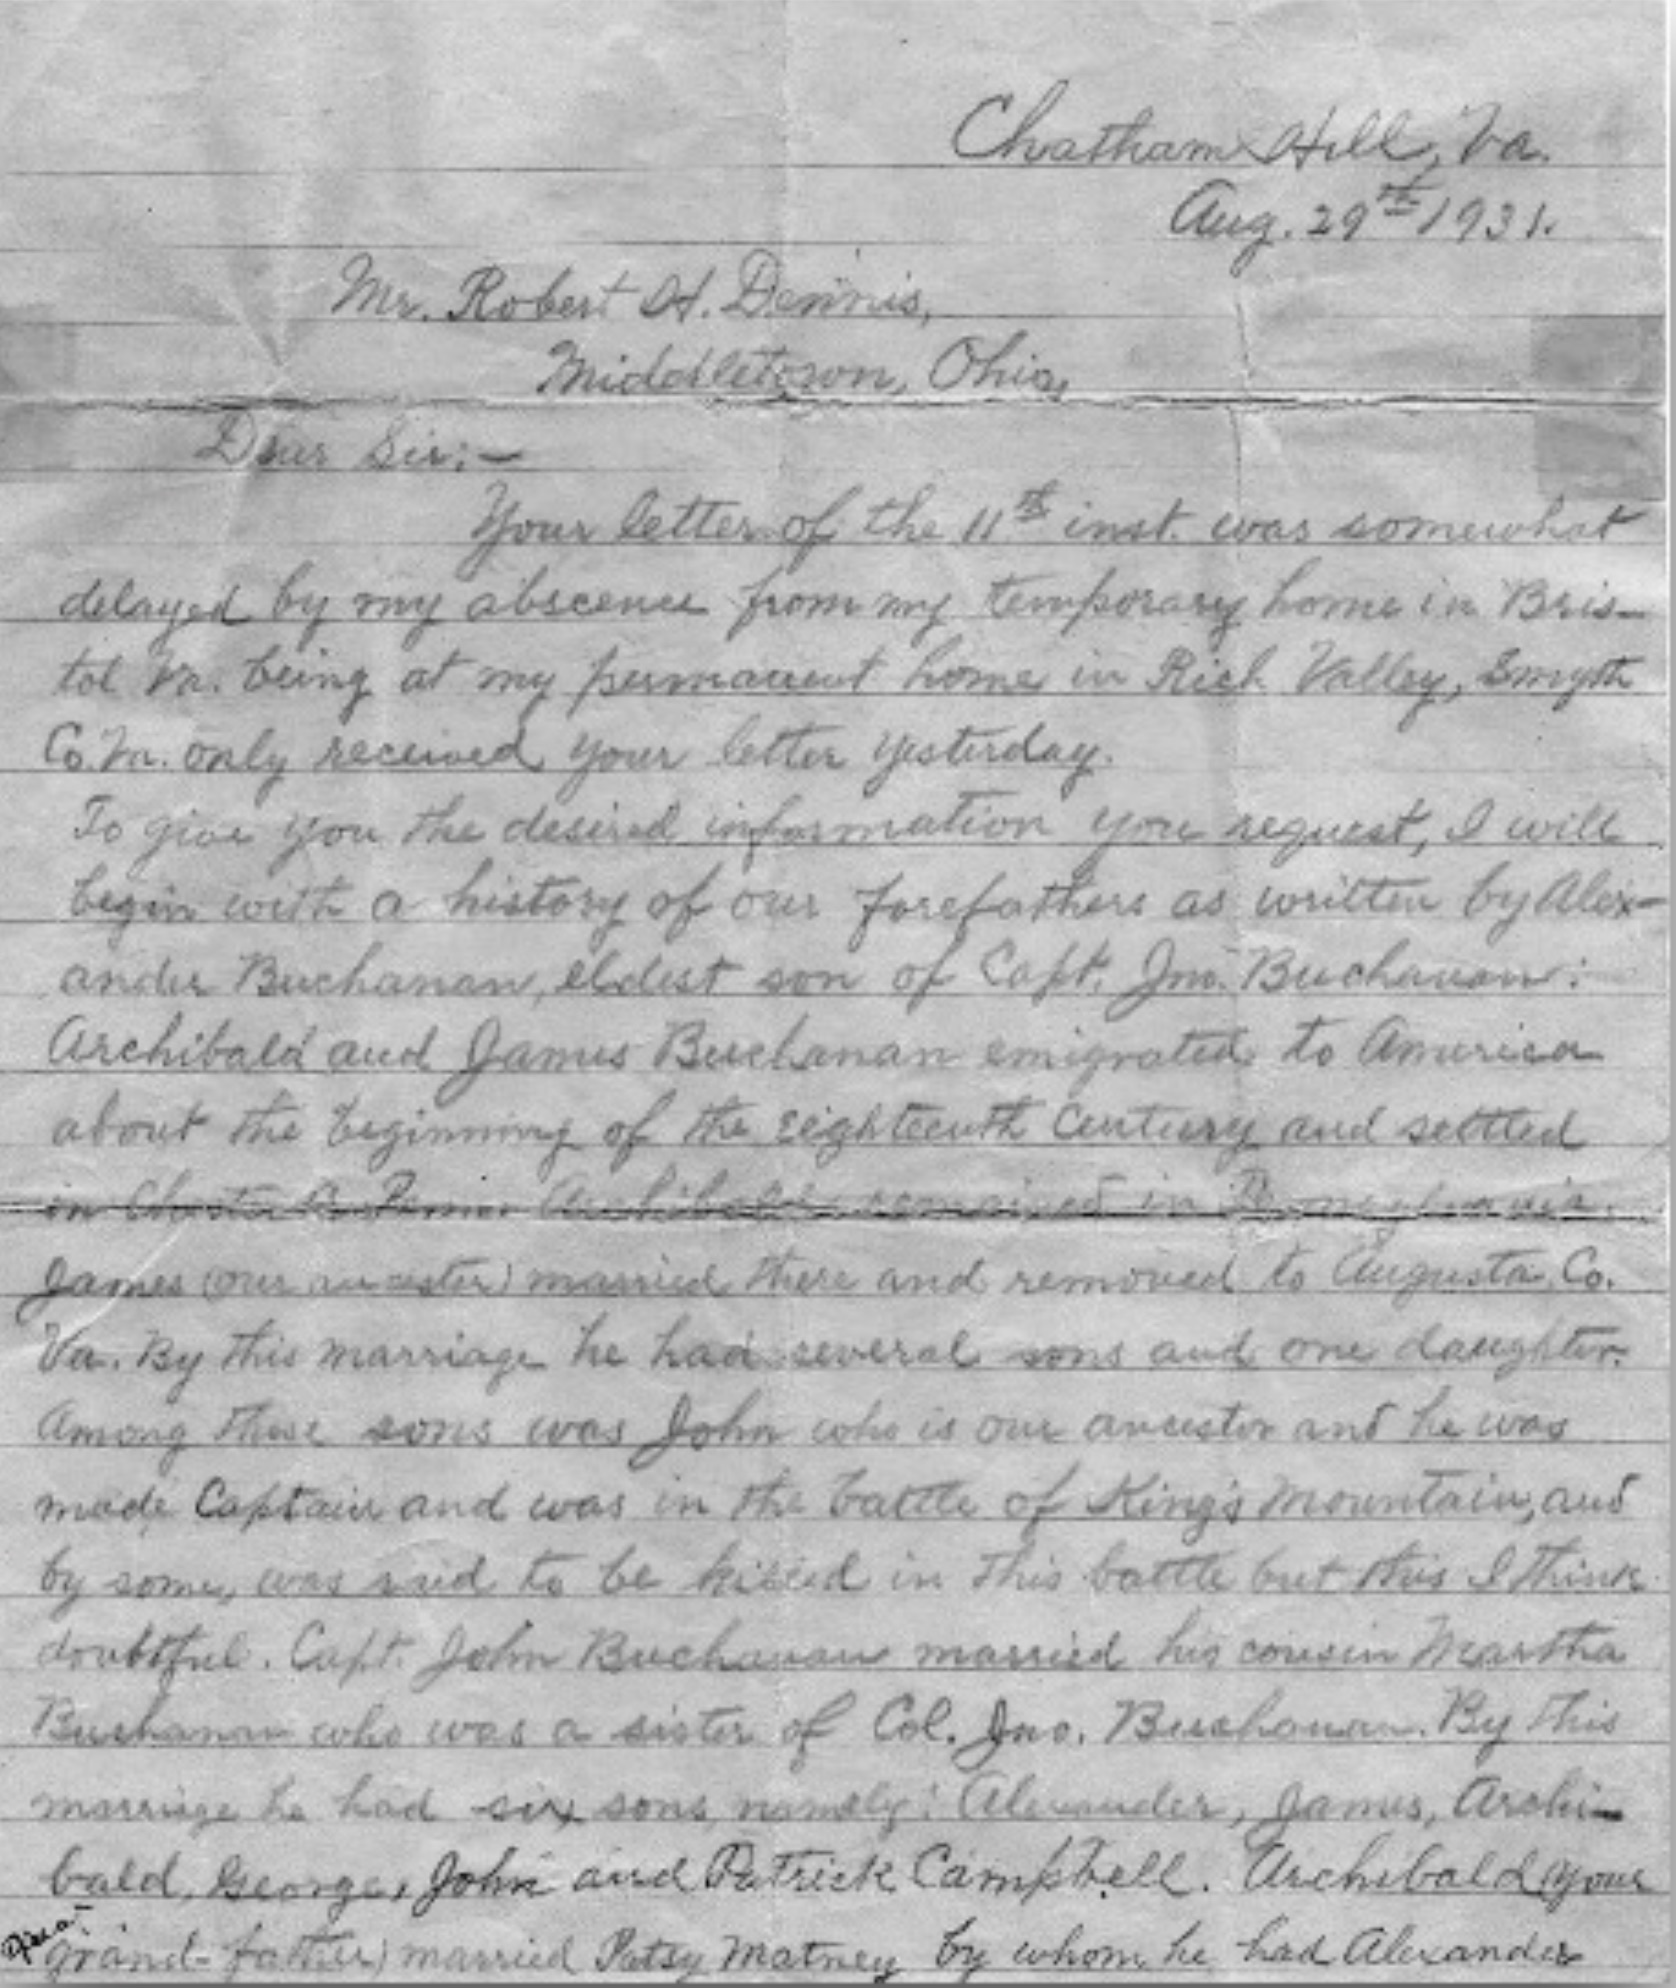 Chatham Hill, Va.
Aug. 29th 1931.
Mr. Robert H. Dennis,
Middletown, Ohio,
Dear Sir:—
Your letter of the 11th inst. was somewhat
delayed by my abscence from my temporary home in Bris-
tol Va. being at my permanent home in Rich Valley, Smyth
Co. Va. only received your letter yesterday.
To give you the desired information you request, I will
begin with a history of our forefathers as written by Alex-
ander Buchanan, eldest son of Capt. Jno. Buchanan:
Archibald and James Buchanan emigrated to America
about the beginning of the Eighteenth Century and settled
in Chester Co. Penna. Archibald remained in Pennsylvania.
James (our ancester) married there and removed to Augusta Co.
Va. By this marriage he had several sons and one daughter.
Among these sons was John who is our ancestor and he was
made Captain and was in the battle of King's Mountain, and
by some, was said to be killed in this battle but this I think
doubtful. Capt. John Buchanan married his cousin Martha
Buchanan who was a sister of Col. Jno. Buchanan. By this
marriage he had six sons, namely: Alexander, James, Archi-
bald, George, John and Patrick Campbell. Archibald (your
great-grand-father) married Patsy Matney by whom he had Alexander